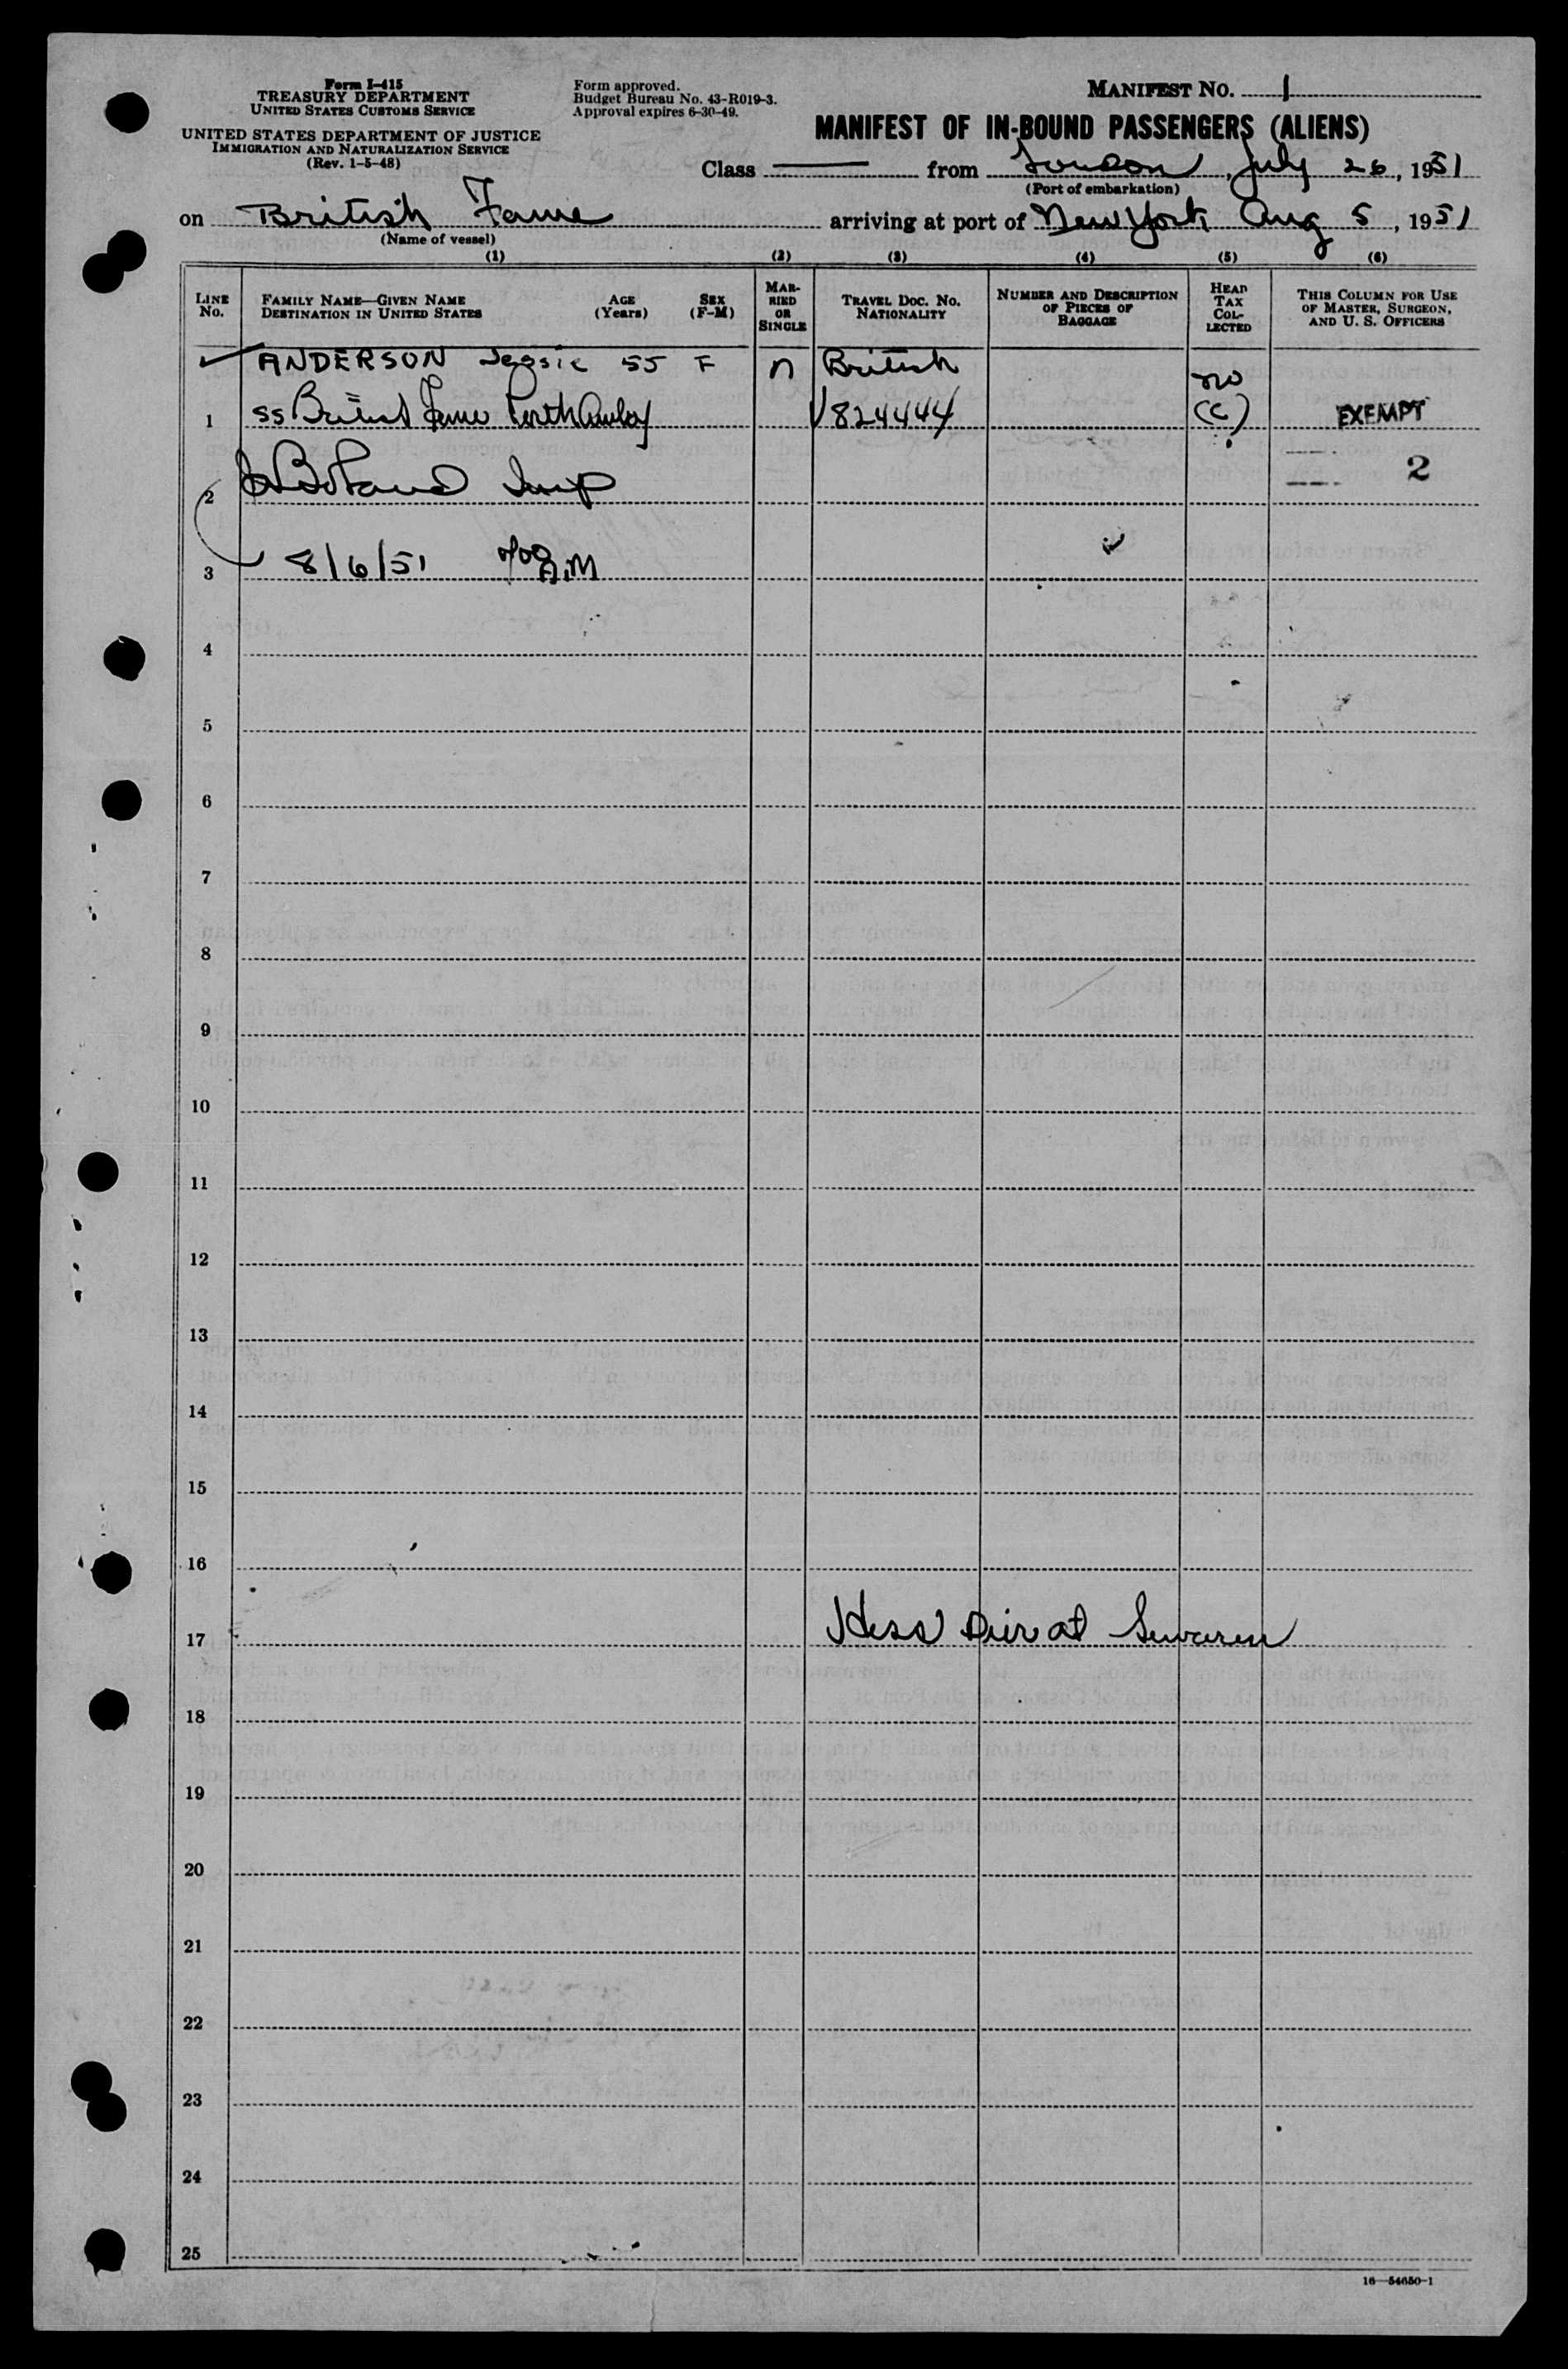 Form I-415
TREASURY DEPARTMENT
UNITED STATES CUSTOMS SERVICE
UNITED STATES DEPARTMENT OF JUSTICE
IMMIGRATION AND NATURALIZATION SERVICE
(Rev. 1-5-48)
Form approved.
Budget Bureau No. 43-R019-3.
Approval expires 6-30-49.
MANIFEST NO. 1
MANIFEST OF IN-BOUND PASSENGERS (ALIENS)
Class from London, July 26, 1951
(Port of embarkation)
on British Fame arriving at port of New York Aug 5, 1951
(Name of vessel)
(1) (2) (3) (4) (5) (6)
LINE No.
FAMILY NAME—GIVEN NAME
DESTINATION IN UNITED STATES
AGE
(Years)
SEX
(F-M)
MAR-
RIED
OR
SINGLE
TRAVEL DOC. NO.
NATIONALITY
NUMBER AND DESCRIPTION
OF PIECES OF
BAGGAGE
HEAD
TAX
COL-
LECTED
THIS COLUMN FOR USE
OF MASTER, SURGEON,
AND U. S. OFFICERS
ANDERSON Jessie 55 F British
no
1 SS British Fame Perth Amboy 824444 (c) EXEMPT
2 Insp 2
3 8/6/51 A.M
4
5
6
7
8
9
10
11
12
13
14
15
16
17 Hess Pier at Sewaren
18
19
20
21
22
23
24
25
16—54650-1